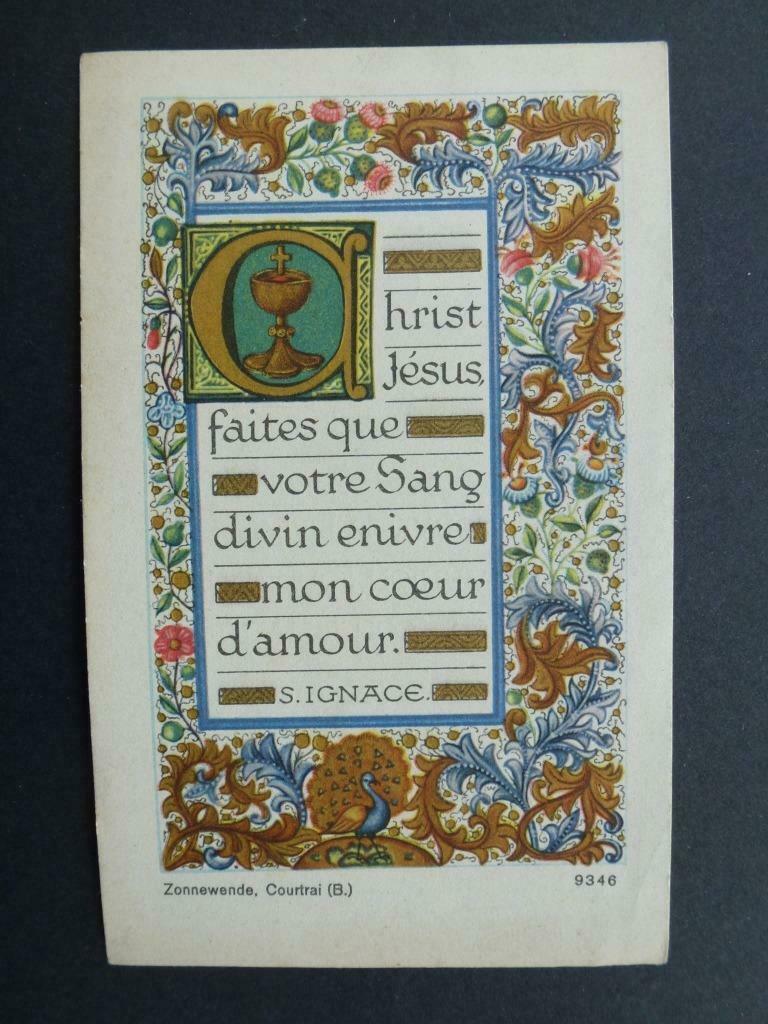 Christ
Jésus,
faites que
votre Sang
divin enivre
mon cœur
d'amour.
S. IGNACE.
9346
Zonnewende, Courtrai (B.)